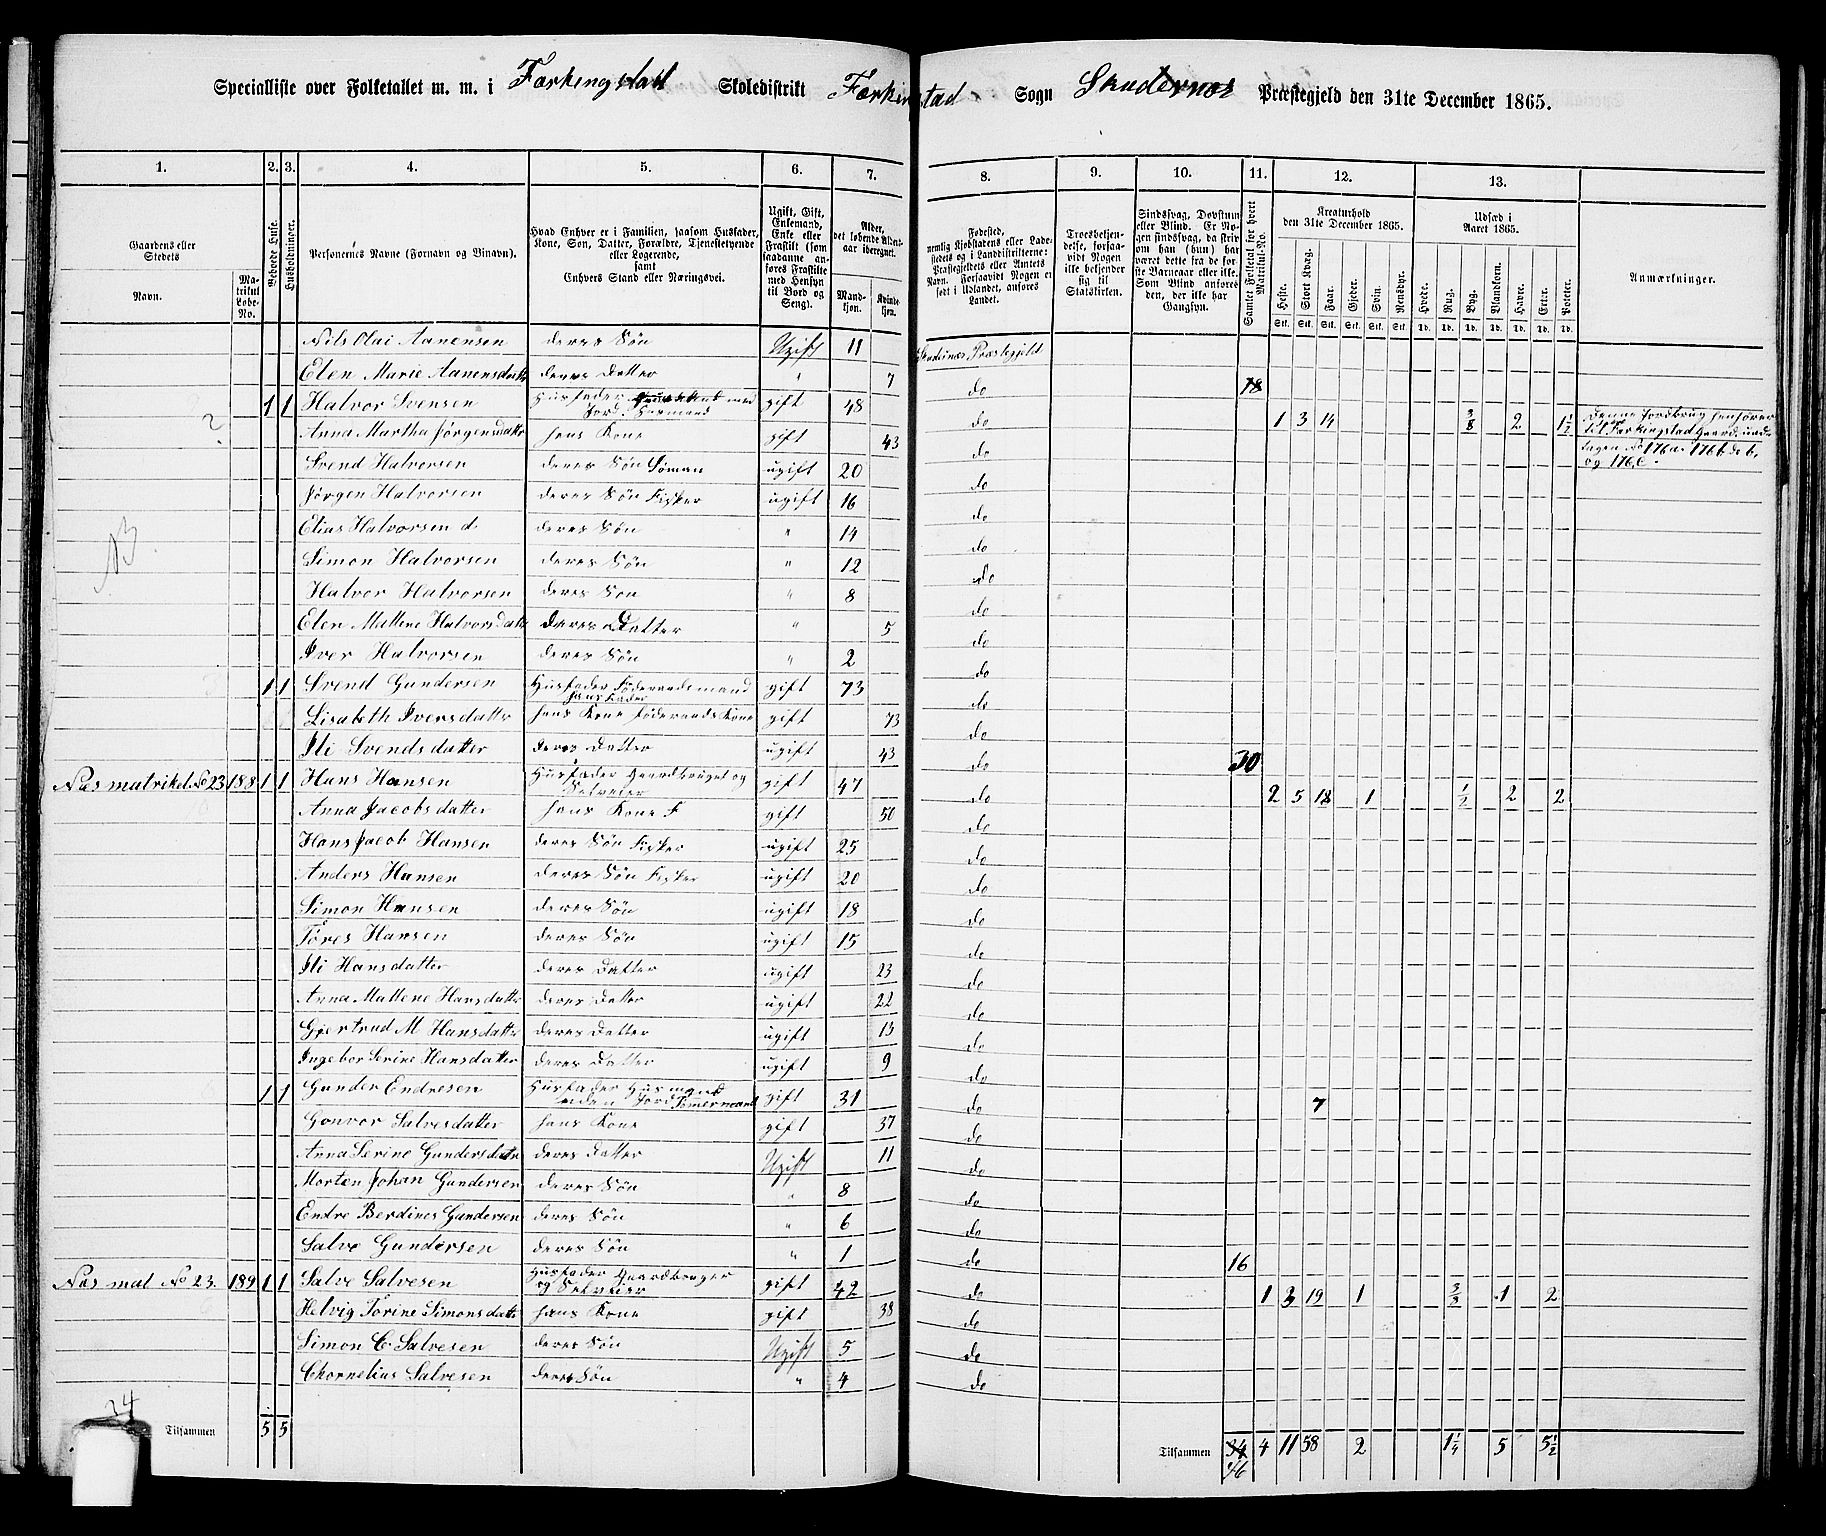 Specialliste over Folketallet m. m. i Færkingstad Skoledistrikt Færkingstad Sogn Skudernæs Præstegjeld den 31te December 1865.
1. 2. 3. 4. 5. 6. 7. 8. 9. 10. 11. 12. 13.
Gaardens eller Stedets
Navn.
Matrikul Løbe-No.
Beboede Huse.
Husholdninger.
Personernes Navne (Fornavn og Tilnavn).
Hvad Enhver er i Familien, saasom Husfader, Kone, Søn, Datter, Forældre, Tjenestetyende eller Logerende, samt Enhvers Stand eller Næringsvei.
Ugift, Gift, Enkemand, Enke eller Fraskilt (som saadanne anføres Fraskilte med Hensyn til Bord og Seng).
Alder, det løbende Alders-aar iberegnet.
Mandkjøn. Kvindekjøn.
Fødested, nemlig Kjøbstadens eller Ladestedets og i Landdistrikterne: Præstegjeldets eller Amtets Navn. Forsaavidt Nogen er født i Udlandet, anføres Landet.
Troesbekjendelse, forsaavidt Nogen ikke bekjender sig til Statskirken.
Sindssvag, Døvstum eller Blind. Er Nogen sindssvag, da skriv om han (hun) har været dette fra de første Barneaar eller ikke. Som Blind anføres den, der ikke har Gangsyn.
Samlet Folketal for hvert Matrikul-No.
Kreaturhold den 31te December 1865.
Heste. Stort Kvæg. Faar. Gjeder. Svin. Rensdyr.
Udsæd i Aaret 1865.
Hvede. Rug. Byg. Blandkorn. Havre. Erter. Poteter.
Anmærkninger.
Nils Olai Aanensen deres Søn Ugift 11 Skudernæs Præstegjeld
Elen Marie Aanensdatter deres Datter " 7 do 18
1 1 Halvor Svensen Husfader gift 48 do 1 3 14 3/8 2 1 1/2
Anna Martha Jørgensdatter hans Kone gift 43 do
Svend Halvorsen deres Søn Søman ugift 20 do
Jørgen Halvorsen deres Søn Fisker ugift 16 do
Elias Halvorsen d deres Søn " 14 do
Simon Halvorsen deres Søn " 12 do
Halvor Halvorsen deres Søn " 8 do
Elen Mallene Halvorsdatter deres Datter " 5 do
Iver Halvorsen deres Søn " 2 do
1 1 Svend Gundersen Husfader Føderaadsmand hans Fader gift 73 do
Lisabeth Iversdatter hans Kone Føderaads Kone gift 73 do
Ili Svendsdatter deres Datter ugift 43 do 30
Næs matrikel. No 23 188 1 1 Hans Hansen Husfader Gaardbruger og Selveier gift 47 do 2 5 18 1 1/2 2 2
Anna Jacobsdatter hans Kone F gift 50 do
Hans Jacob Hansen deres Søn Fisker ugift 25 do
Anders Hansen deres Søn Fisker ugift 20 do
Simon Hansen deres Søn ugift 18 do
Tores Hansen deres Søn ugift 15 do
Ili Hansdatter deres Datter ugift 23 do
Anna Mallene Hansdatter deres Datter ugift 22 do
Gjertrud M Hansdatter deres Datter ugift 13 do
Ingebor Serine Hansdatter deres Datter ugift 9 do
1 1 Gunder Endresen Husfader Husmand uden Jord Tømermand gift 31 do 7
Gonvor Salvesdatter hans Kone gift 37 do
Anna Serine Gundersdatter deres Datter Ugift 11 do
Morten Johan Gundersen deres Søn " 8 do
Endre Berdines Gundersen deres Søn " 6 do
Salve Gundersen deres Søn " 1 do 16
Næs mal No 23. 189 1 1 Salve Salvesen Husfader Gaardbruger og Selveier gift 42 do 1 3 19 1 3/8 1 2
Helvig Torine Simonsdatter hans Kone gift 38 do
Simon C Salvesen deres Søn Ugift 5 do
Chornelius Salvesen deres Søn " 4 do
Denne Jordbrug henhører til Færkingstad Gaard
og 176,c.
24
Tilsammen 5 5
Tilsammen 34 46 4 11 58 2 1 1/4 5 5 1/2